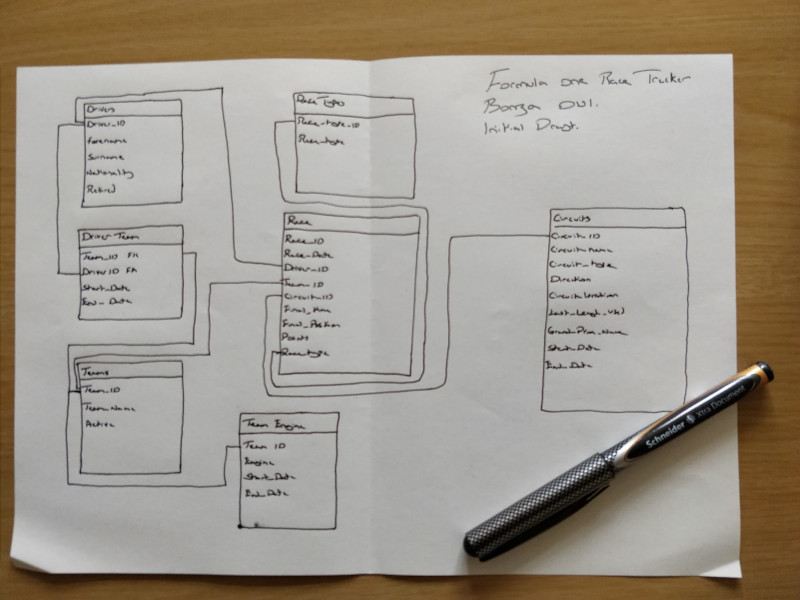 Formula one Race Tracker
Bonza Owl.
Initial Draft.
Drivers
Driver_ID
forename
Surname
Nationality
Retired
Race Types
Race_type_ID
Race_type
Driver Team
Team_ID FK
DriverID FK
Start_Date
End_Date
Race
Race_ID
Race_Date
Driver_ID
Team_ID
Circuit_ID
Final_Time
Final_Position
Points
Race_type
Circuits
Circuit_ID
Circuit_Name
Circuit_type
Direction
Circuit_location
Grand_Prix_Name
Start_Date
End_Date
Teams
Team_ID
Team_Name
Active
Team Engine
Team ID
Engine
Start_Date
End_Date
Schneider Xtra Document